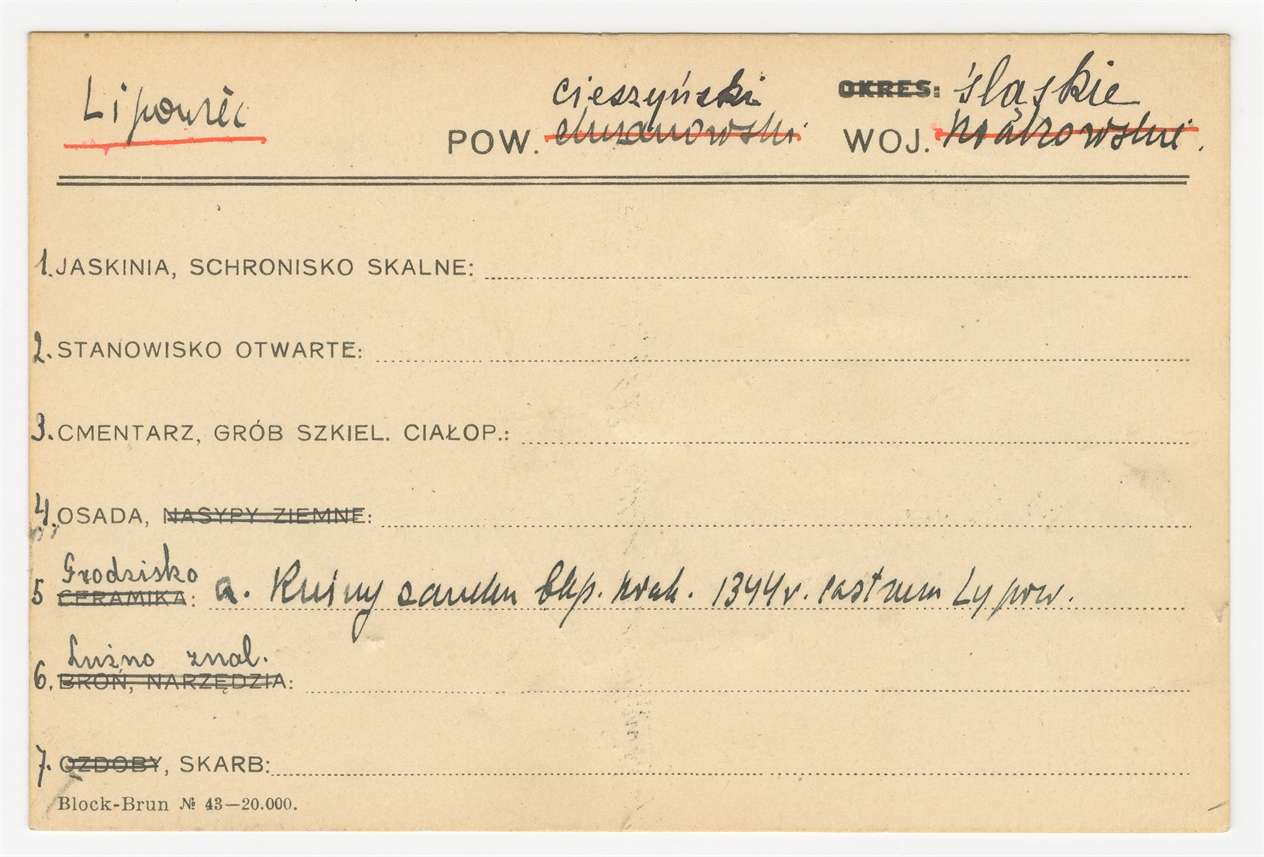 Lipowiec
cieszyński OKRES: śląskie
POW. chrzanowski WOJ. krakowskie.
1. JASKINIA, SCHRONISKO SKALNE:
2. STANOWISKO OTWARTE:
3. CMENTARZ, GRÓB SZKIEL. CIAŁOP.:
4. OSADA, NASYPY ZIEMNE:
Grodzisko
5 CERAMIKA: a. Ruiny zamku bkp. krak. 1344 r. castrum Lypow.
Luźno znal.
6. BROŃ, NARZĘDZIA:
7. OZDOBY, SKARB:
Block-Brun № 43—20.000.